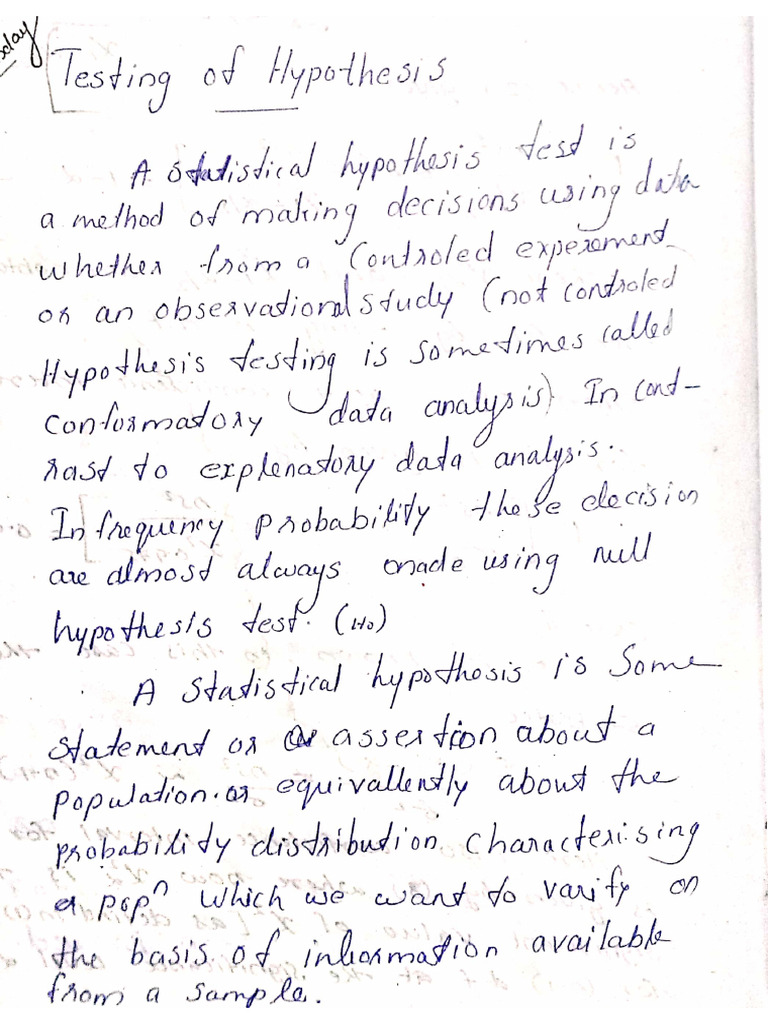 Testing of Hypothesis
A statistical hypothesis test is
a method of making decisions using data
whether from a Controled experement
or an observational study (not controled
Hypothesis testing is sometimes called
Conformatory data analysis) In cont-
rast to explenatory data analysis.
In frequency probability these decision
are almost always made using null
hypothesis test. (H0)
A Statistical hypothesis is Some
statement or assertion about a
population. or equivallently about the
probability distribution Characterising
a popn which we want to varify on
the basis of information available
from a sample.